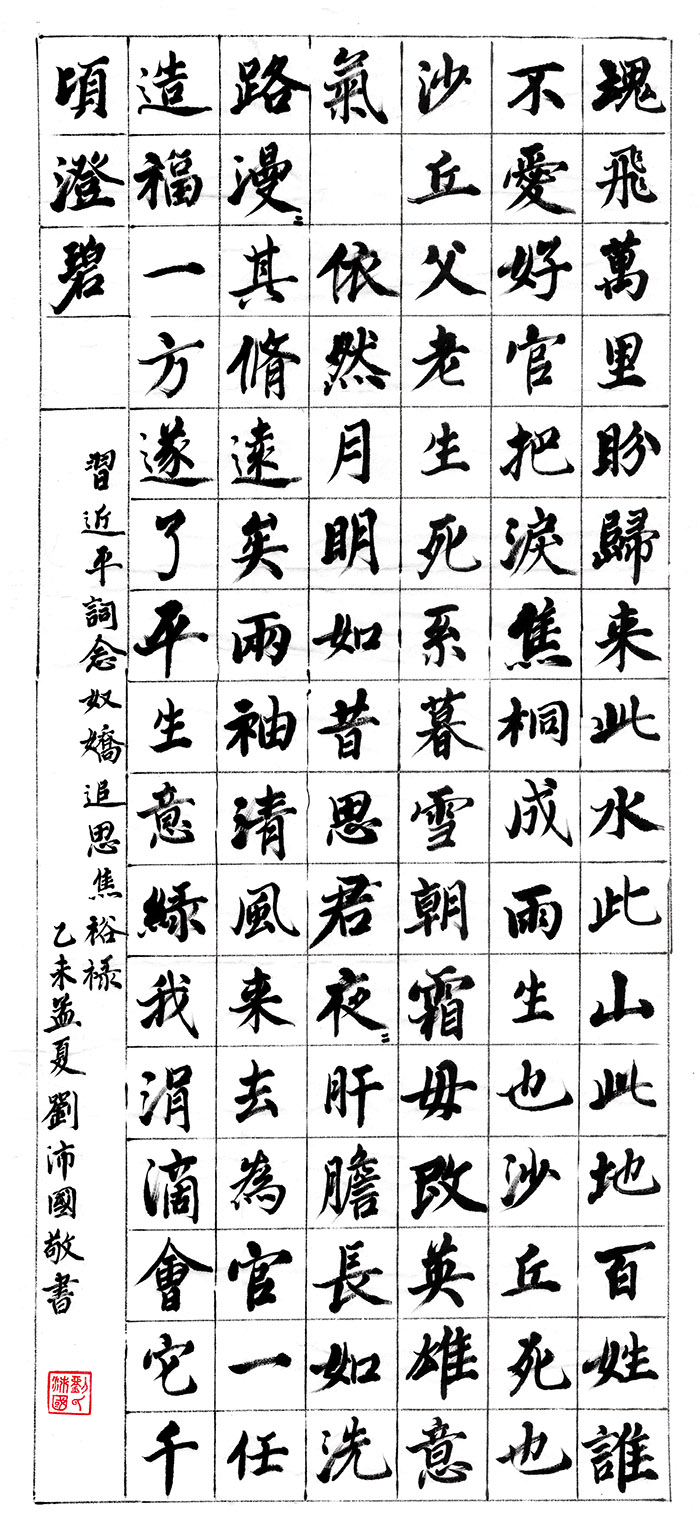 塊飛萬里盼歸来此水此山此地百姓誰
不愛好官把淚焦桐成雨生也沙丘死也
沙丘父老生死系暮雪朝霜毋改英雄意
氣 依然月明如昔思君夜〻肝膽長如洗
路漫〻其脩遠矣兩袖清風来去為官一任
造福一方遂了平生意綠我涓滴會它千
頃澄碧
習近平詞念奴嬌追思焦裕祿
乙未孟夏劉沛國敬書
劉沛國